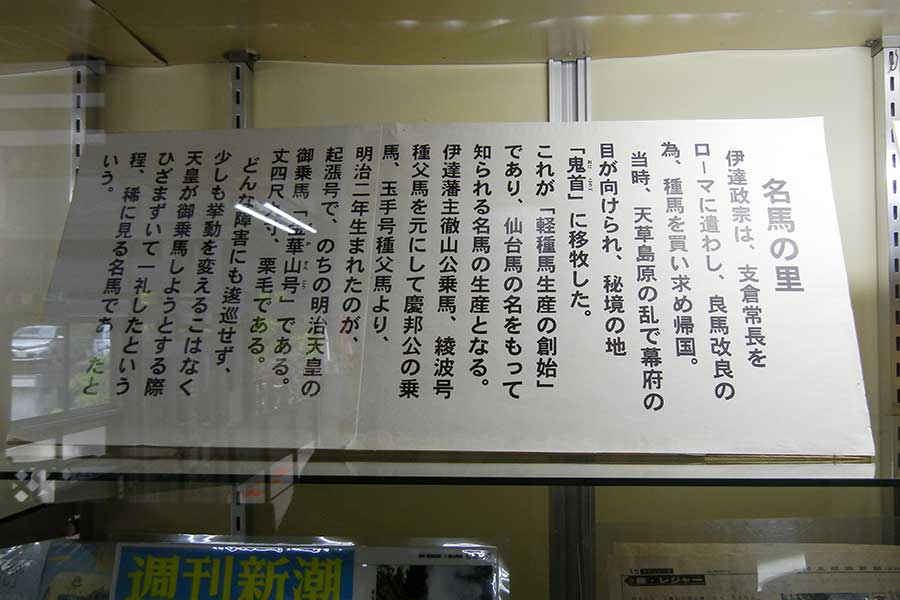 名馬の里
伊達政宗は、支倉常長を
ローマに遣わし、良馬改良の
為、種馬を買い求め帰国。
当時、天草島原の乱で幕府の
目が向けられ、秘境の地
「鬼首」に移牧した。
これが「軽種馬生産の創始」
であり、仙台馬の名をもって
知られる名馬の生産となる。
伊達藩主徹山公乗馬、綾波号
種父馬を元にして慶邦公の乗
馬、玉手号種父馬より、
明治二年生まれたのが、
起漲号で、のちの明治天皇の
御乗馬「金華山号」である。
丈四尺 寸、栗毛である。
どんな障害にも逡巡せず、
少しも挙動を変えるこはなく
天皇が御乗馬しようとする際
ひざまずいて一礼したという
程、稀に見る名馬であ たと
いう。
週刊新潮
旅・レジャー